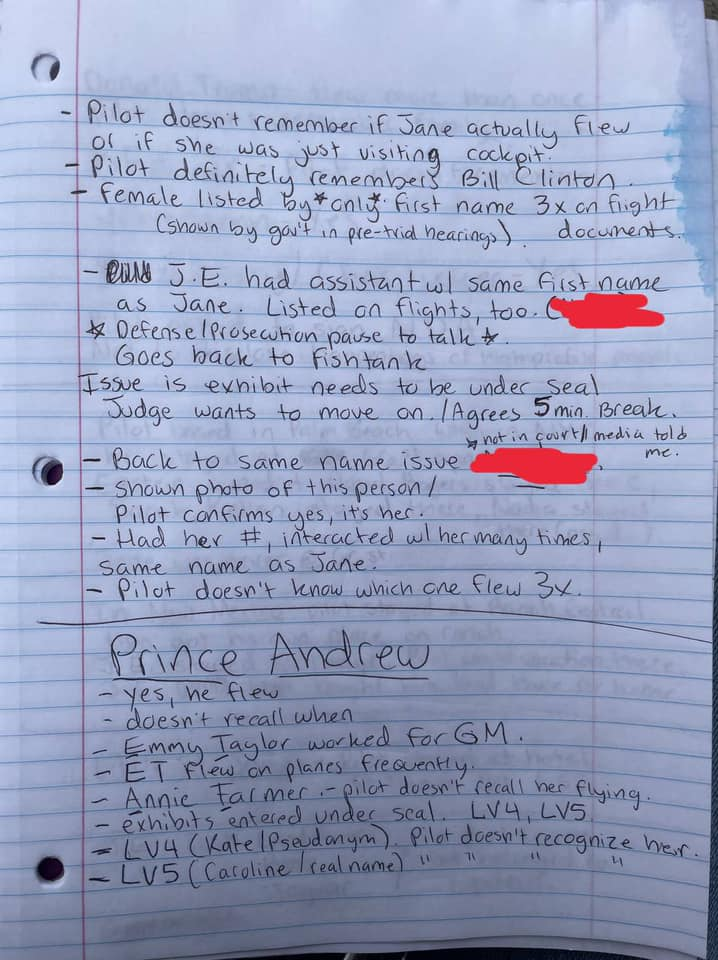 - Pilot doesn't remember if Jane actually flew
or if she was just visiting cockpit.
- Pilot definitely remembers Bill Clinton.
- female listed by *only* first name 3x on flight
(shown by gov't in pre-trial hearings). documents.
- J.E. had assistant w/ same first name
as Jane. Listed on flights, too. (
* Defense/Prosecution pause to talk *.
Goes back to fishtank
Issue is exhibit needs to be under seal
Judge wants to move on. / Agrees 5 min. Break.
not in court/ media told
me.
- Back to same name issue
- Shown photo of this person/
Pilot confirms yes, it's her.
- Had her #, interacted w/ her many times,
same name as Jane.
- Pilot doesn't know which one flew 3x.
Prince Andrew
- yes, he flew
- doesn't recall when
- Emmy Taylor worked for GM.
- ET flew on planes frequently.
- Annie Farmer - pilot doesn't recall her flying.
- exhibits entered under seal. LV4, LV5
- LV4 (Kate/Pseudonym). Pilot doesn't recognize her.
- LV5 (Caroline/real name) " " " "